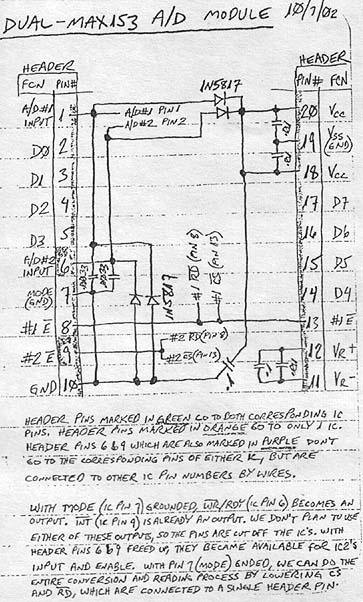 DUAL-MAX153 A/D MODULE 10/7/02
HEADER
FCN PIN#
A/D#1 INPUT 1
D0 2
D1 3
D2 4
D3 5
A/D#2 INPUT 6
MODE (GND) 7
#1 E 8
#2 E 9
GND 10
HEADER
PIN# FCN
20 VCC
19 VSS (GND)
18 VCC
17 D7
16 D6
15 D5
14 D4
13 #1 E
12 VR+
11 VR-
1N5817
A/D#1 PIN 1
A/D#2 PIN 2
1N5817
#1 RD (PIN 8)
#1 CS (PIN 13)
#2 RD (PIN 8)
#2 CS (PIN 13)
HEADER PINS MARKED IN GREEN GO TO BOTH CORRESPONDING IC
PINS. HEADER PINS MARKED IN ORANGE GO TO ONLY 1 IC.
HEADER PINS 6 & 9 WHICH ARE ALSO MARKED IN PURPLE DON'T
GO TO THE CORRESPONDING PINS OF EITHER IC, BUT ARE
CONNECTED TO OTHER IC PIN NUMBERS BY WIRES.
WITH MODE (IC PIN 7) GROUNDED, WR/RDY (IC PIN 6) BECOMES AN
OUTPUT. INT (IC PIN 9) IS ALREADY AN OUTPUT. WE DON'T PLAN TO USE
EITHER OF THESE OUTPUTS, SO THE PINS ARE CUT OFF THE IC'S. WITH
HEADER PINS 6 & 9 FREED UP, THEY BECAME AVAILABLE FOR IC2'S
INPUT AND ENABLE. WITH PIN 7 (MODE) GNDED, WE CAN DO THE
ENTIRE CONVERSION AND READING PROCESS BY LOWERING CS
AND RD, WHICH ARE CONNECTED TO A SINGLE HEADER PIN.